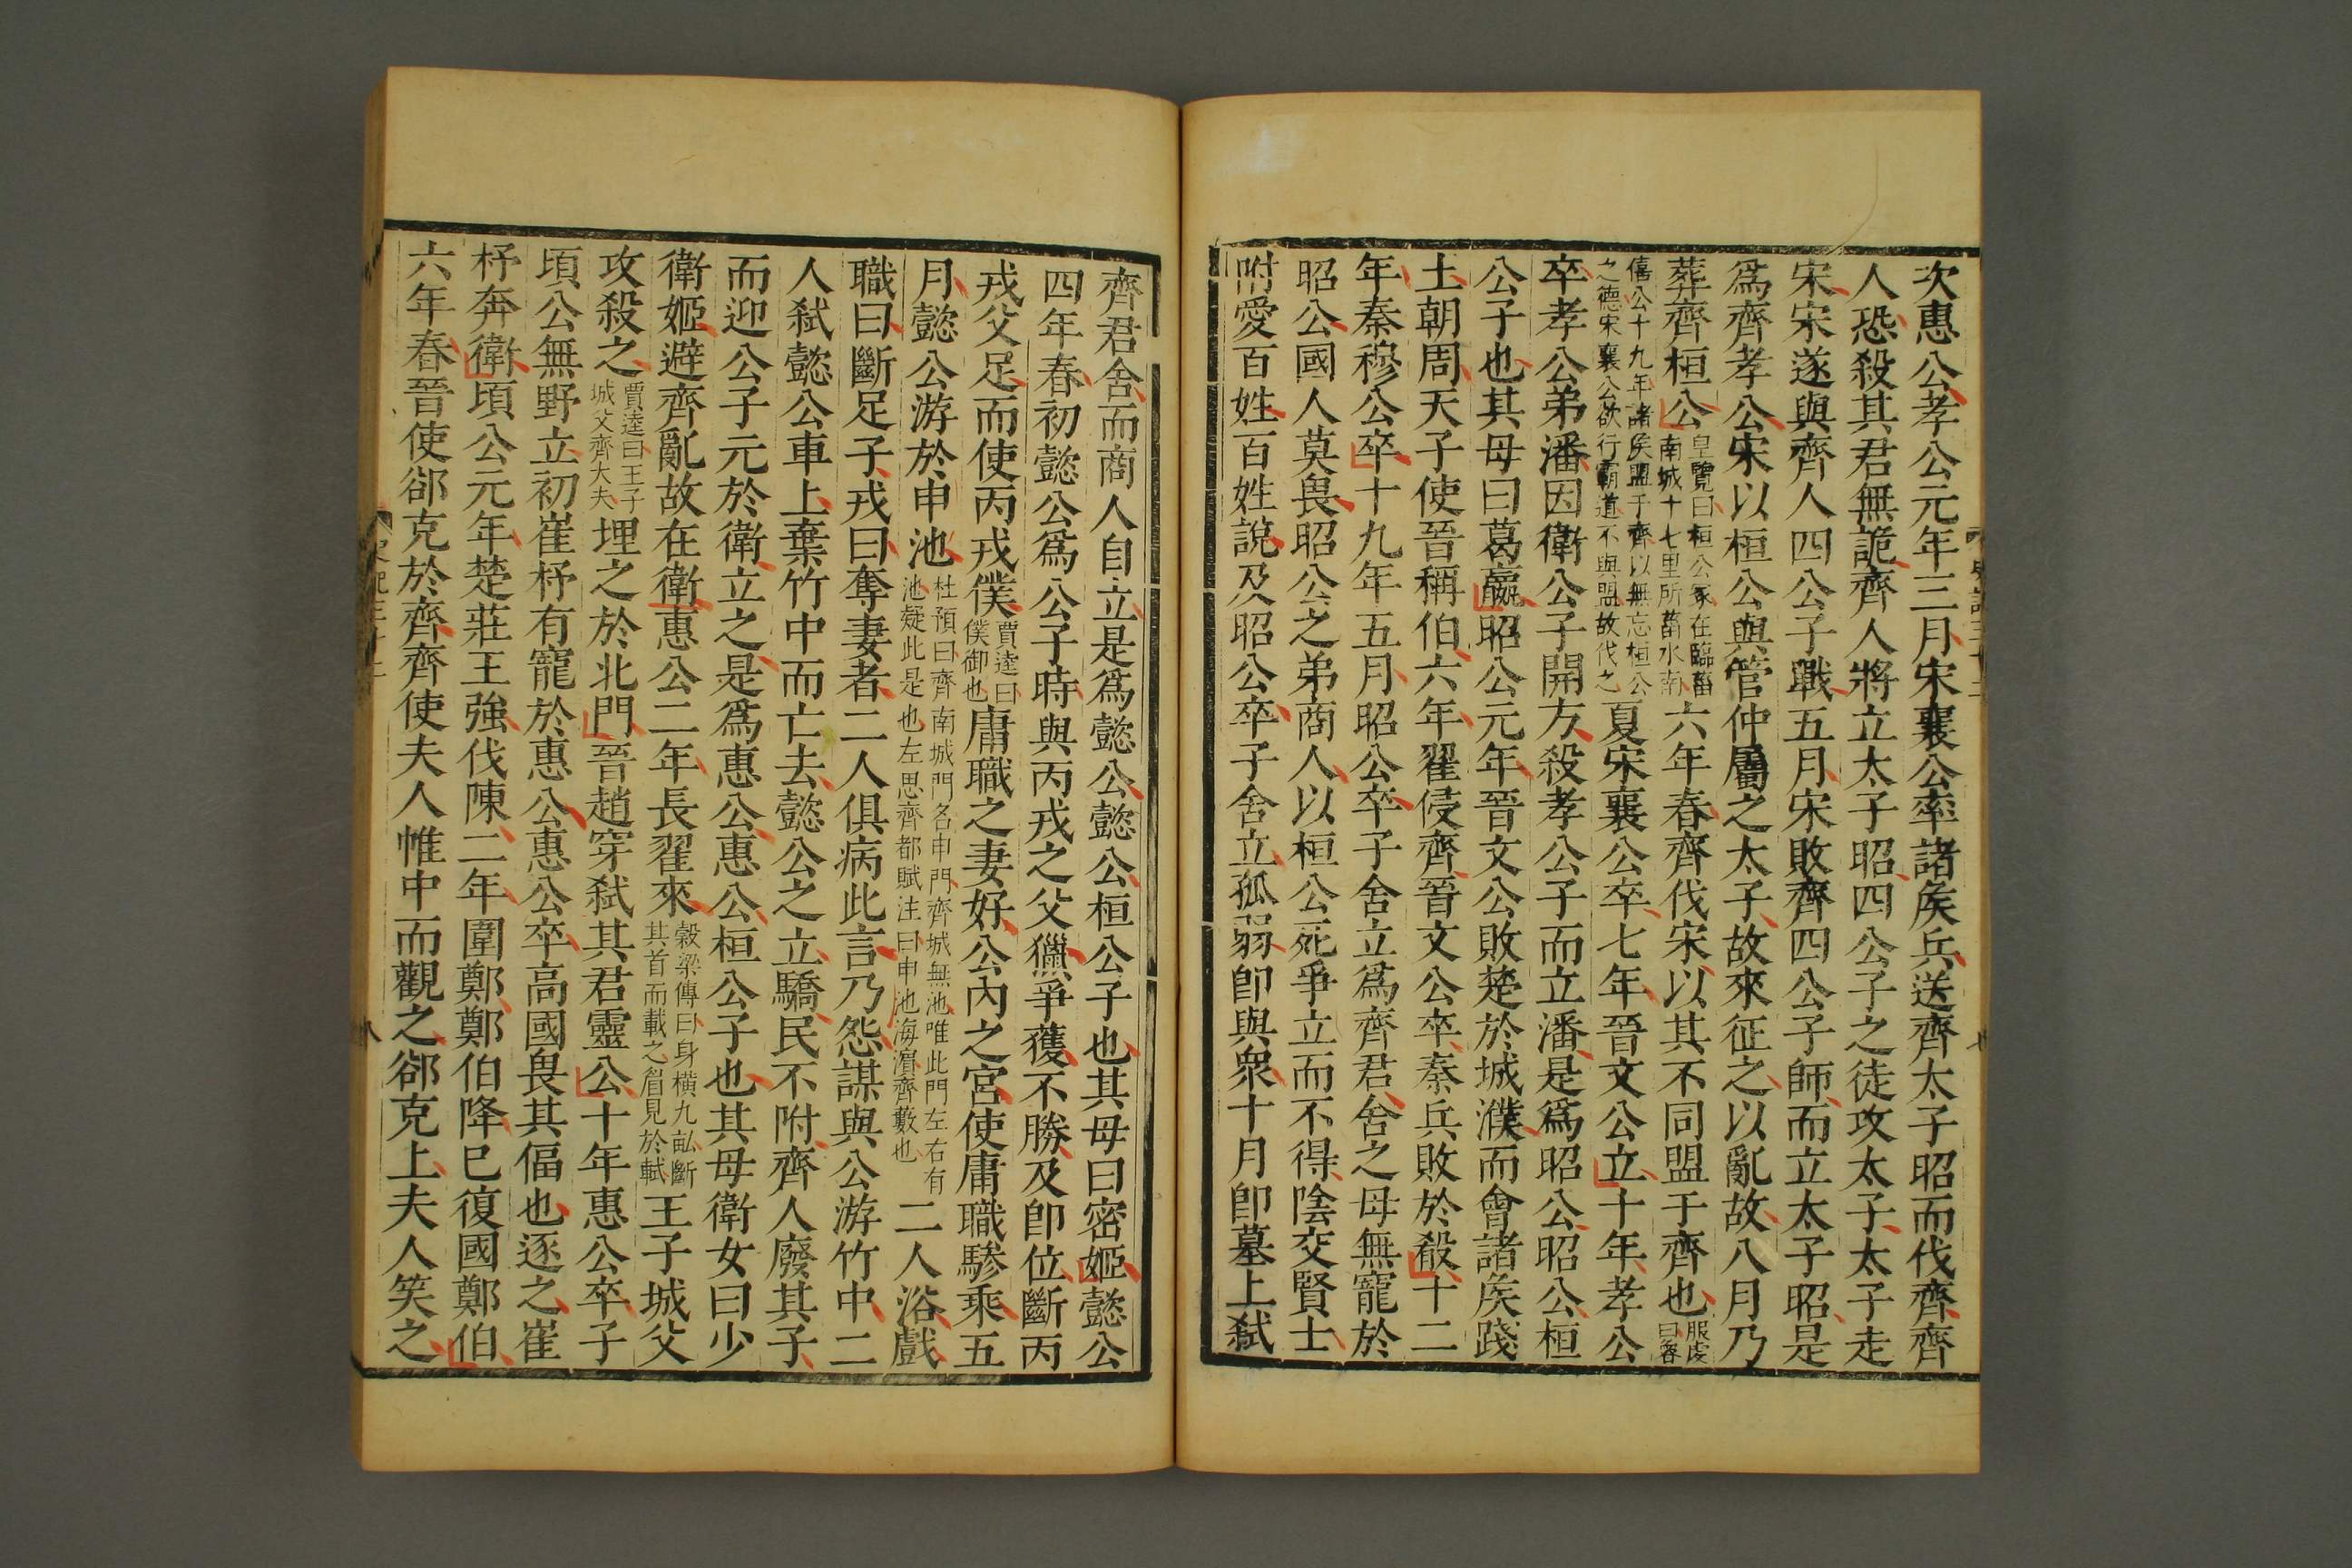 次惠公孝公元年三月宋襄公率諸矦兵送齊太子昭而伐齊齊
人恐殺其君無詭齊人將立太子昭四公子之徒攻太子太子走
宋宋遂與齊人四公子戰五月宋敗齊四公子師而立太子昭是
爲齊孝公宋以桓公與管仲屬之太子故來征之以亂故八月乃
葬齊桓公皇覽曰桓公冢在臨菑南城十七里所菑水南六年春齊伐宋以其不同盟于齊也服虔曰魯
僖公十九年諸矦盟于齊以無忘桓公之德宋襄公欲行霸道不與盟故伐之夏宋襄公卒七年晉文公立十年孝公
卒孝公弟潘因衛公子開方殺孝公子而立潘是爲昭公昭公桓
公子也其母曰葛嬴昭公元年晉文公敗楚於城濮而會諸矦踐
土朝周天子使晉稱伯六年翟侵齊晉文公卒秦兵敗於殽十二
年秦穆公卒十九年五月昭公卒子舍立爲齊君舍之母無寵於
昭公國人莫畏昭公之弟商人以桓公死爭立而不得陰交賢士
附愛百姓百姓說及昭公卒子舍立孤弱即與衆十月即墓上弑
齊君舍而商人自立是爲懿公懿公桓公子也其母曰密姬懿公
四年春初懿公爲公子時與丙戎之父獵爭獲不勝及即位斷丙
戎父足而使丙戎僕賈逵曰僕御也庸職之妻好公內之宮使庸職驂乘五
月懿公游於申池杜預曰齊南城門名申門齊城無池唯此門左右有池疑此是也左思齊都賦注曰申池海濱齊藪也二人浴戲
職曰斷足子戎曰奪妻者二人俱病此言乃怨謀與公游竹中二
人弑懿公車上棄竹中而亡去懿公之立驕民不附齊人廢其子
而迎公子元於衛立之是爲惠公惠公桓公子也其母衛女曰少
衛姬避齊亂故在衛惠公二年長翟來穀梁傳曰身橫九畝斷其首而載之眉見於軾王子城父
攻殺之賈逵曰王子城父齊大夫埋之於北門晉趙穿弑其君靈公十年惠公卒子
頃公無野立初崔杼有寵於惠公惠公卒高國畏其偪也逐之崔
杼奔衛頃公元年楚莊王強伐陳二年圍鄭鄭伯降已復國鄭伯
六年春晉使郤克於齊齊使夫人帷中而觀之郤克上夫人笑之